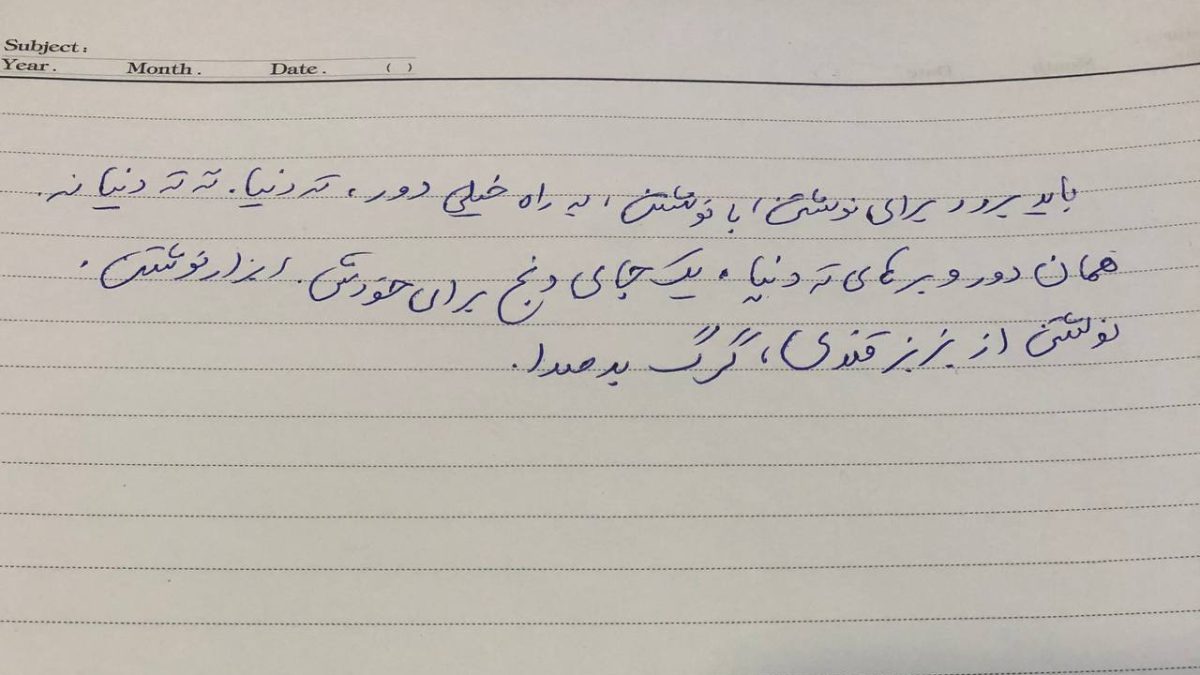 Subject:
Year. Month. Date. ( )
باید برود برای نوشتن، با نوشتن، به راه خیلی دور، ته دنیا. ته ته دنیا نه.
همان دور و برهای ته دنیا. یک جای دنج برای خودش. ابزار نوشتن.
نوشتن از بزبز قندی، گرگ بد صدا.